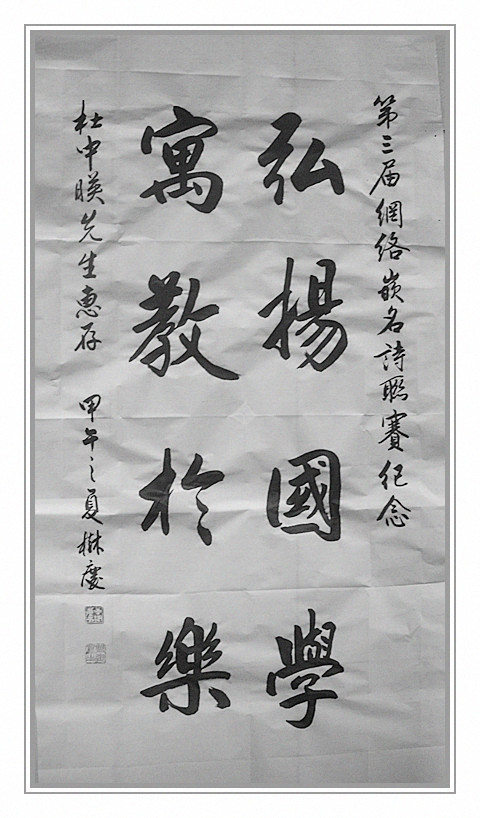 第三届網络嵌名詩聯賽纪念
弘揚國學
寓教於樂
杜中暎先生惠存
甲午之夏楙慶